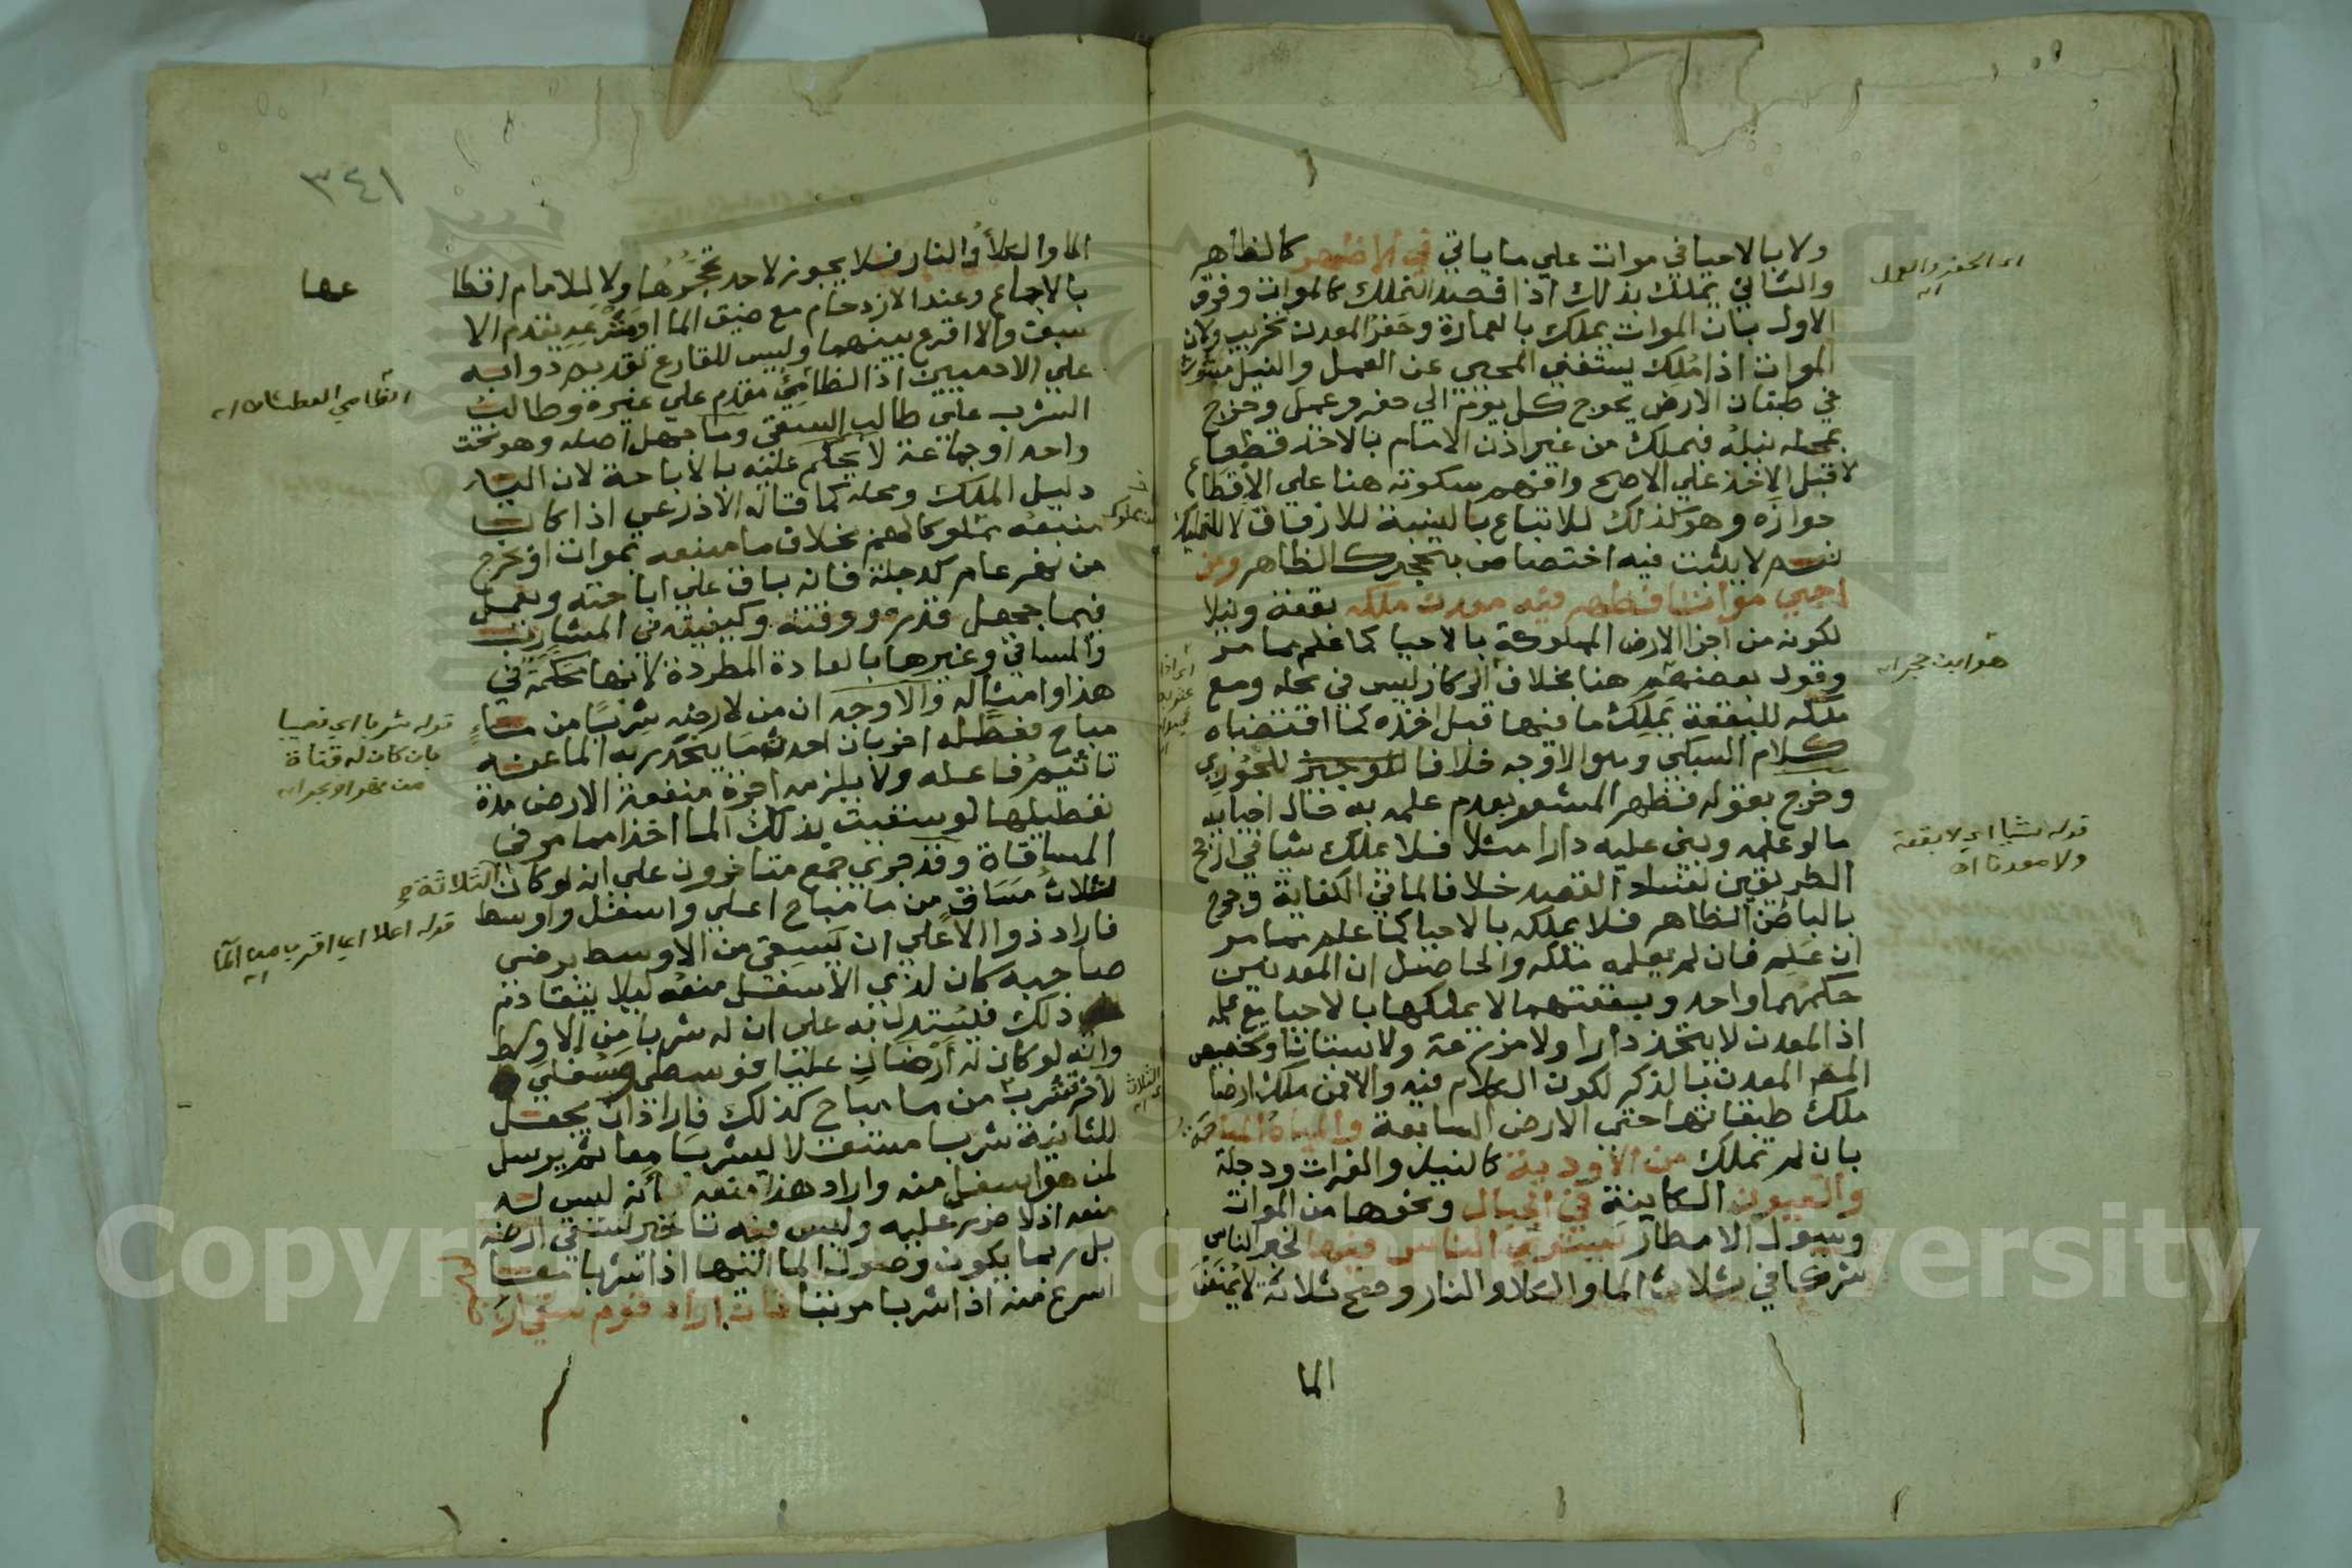 ولا بالاحيا في موات علي ما ياتي في الاظهر كالظاهر
والثاني يملك بذلك اذا قصد التملك كالموات وفرق
الاول بان الموات يملك بالعمارة وحفر المعدن تخريب ولان
الموات اذا ملك يستغني المحيي عن العمل والنيل مبثوث
في طبقات الارض يحوج كل يوم الي حفر وعمل وخرج
بمحله نيله فيملك من غير اذن الامام بالاخذ قطعا
لا قبل الاخذ علي الاصح وافهم سكوته هنا علي الاقطاع
جوازه وهو كذلك للاتباع بالنسبة للارفاق لا للتمليك
نعم لا يثبت فيه اختصاص بتحجر كالظاهر ومن
احيي مواتا فظهر فيه معدن ملكه بقعة ونيلا
لكونه من اجزا الارض المملوكة بالاحيا كما علم مما مر
وقول بعضهم هنا بخلاف الركاز ليس في محله ومع
ملكه للبقعة يملك ما فيها قبل اخذه كما اقتضاه
كلام السبكي وهو الاوجه خلافا للجوري
وخرج بقوله فظهر المشعر بعدم علمه به حال احيايه
ما لو علمه وبني عليه دارا مثلا فلا يملك شيا في ارجح
الطريقين لفساد القصد خلافا لما في الكفاية وخرج
بالباطن الظاهر فلا يملكه بالاحيا كما علم مما مر
ان علمه فان لم يعلمه ملكه والحاصل ان المعدنين
حكمهما واحد وبقعتهما لا يملكها بالاحيا مع علمه
اذ المعدن لا يتخذ دارا ولا مزرعة ولا بستانا وتخصيص
المص المعدن بالذكر لكون الكلام فيه والا فمن ملك ارضا
ملك طبقاتها حتي الارض السابعة والمياه المباحة
بان لم تملك من الاودية كالنيل والفرات ودجلة
والعيون الكاينة في الجبال ونحوها من الموات
وسيول الامطار يستوي الناس فيها لخبر الناس
شركا في ثلاث الما والكلا والنار وصح ثلاثة لا يمنعن
الما
اي الحفر والعمل اه
هو ابن حجر اه
قوله شيا اي لا بقعة
ولا معدنا اه
٣٤١
الما والكلأ والنار فلا يجوز لاحد تحجرها ولا للامام اقطا
عها
بالاجماع وعند الازدحام مع ضيق الما او مشرعه يقدم الا
سبق والا اقرع بينهما وليس للقارع تقديم دوابه
علي الادميين اذ الظامي مقدم علي غيره وطالب
الشرب علي طالب السقي وما جهل اصله وهو تحت
واحد او جماعة لا يحكم عليه بالاباحة لان اليد
دليل الملك ومحله كما قاله الاذرعي اذا كان
منبعه مملوكا لهم بخلاف ما منبعه بموات او يخرج
من نهر عام كدجلة فانه باق علي اباحته ويعمل
فيما جهل قدره ووقته وكيفيته في المشارب
والمساقي وغيرها بالعادة المطردة لانها محكمة في
هذا وامثاله والاوجه ان من لارضه شربا من ماء
مباح فعطله اخر بان احدث ما ينحدر به الما عنه
تاثيم فاعله ولا يلزمه اجرة منفعة الارض مدة
تعطيلها لو سقيت بذلك الما اخذا مما مر في
المساقاة وقد جري جمع متاخرون علي انه لو كان الثلاثة
لثلاث مساق من ما مباح اعلي واسفل واوسط
فاراد ذو الاعلي ان يسقي من الاوسط برضي
صاحبه كان لذي الاسفل منعه ليلا يتقادم
ذلك فيستدل به علي ان له شربا من الاوسط
وانه لو كان له ارضان عليا فوسطي وسفلي
لاخر تشرب من ما مباح كذلك فاراد ان يجعل
للثانية شربا مستقلا ليشربا معا ثم يرسل
لمن هو اسفل منه واراد هذا منعه بأنه ليس له
منعه اذ لا ضرر عليه وليس فيه تاخير لسقي ارضه
بل ربما يكون وصول الما اليها اذا شربا معا
اسرع منه اذا شربا مرتبا فان اراد قوم سقي ارضهم
الظامي العطشان اه
قوله شربا اي نصيبا
بان كان له قناة
من نهر او بحر اه
قوله اعلا اي اقرب من الما اه